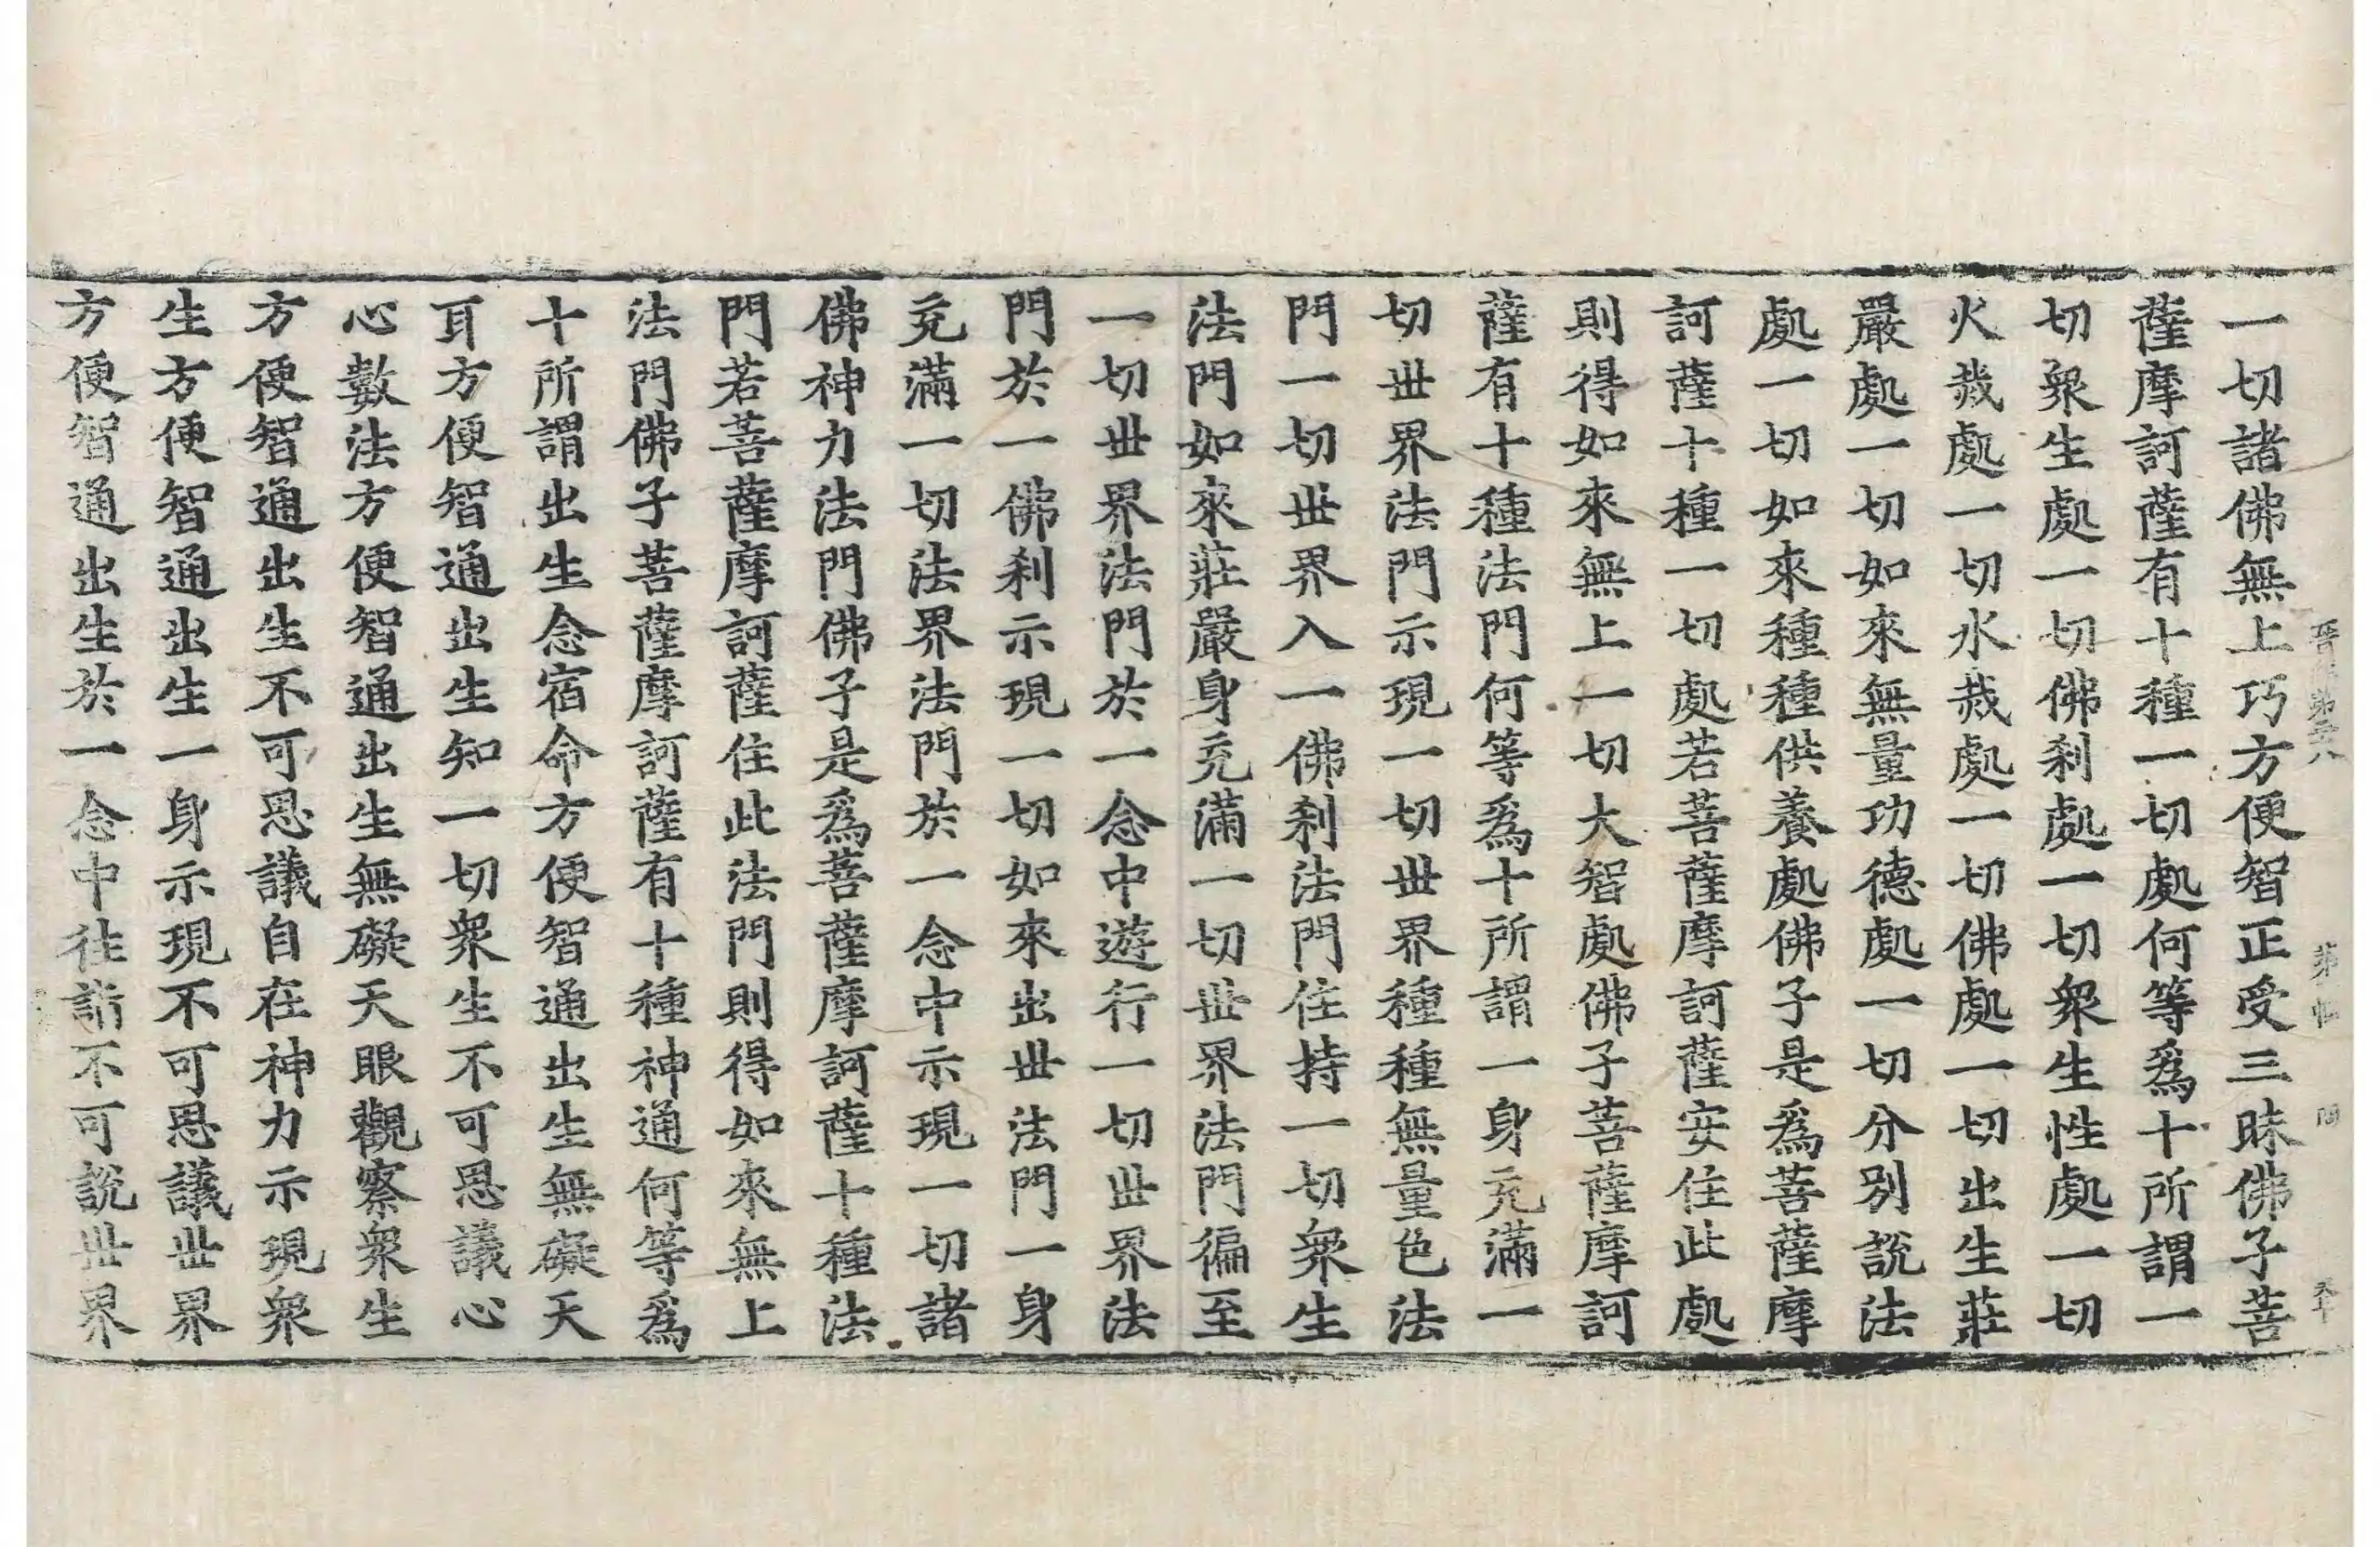 一切諸佛無上巧方便智正受三昧佛子菩
薩摩訶薩有十種一切處何等爲十所謂一
切衆生處一切佛刹處一切衆生性處一切
火烖處一切水烖處一切佛處一切出生莊
嚴處一切如來無量功德處一切分別說法
處一切如來種種供養處佛子是爲菩薩摩
訶薩十種一切處若菩薩摩訶薩安住此處
則得如來無上一切大智處佛子菩薩摩訶
薩有十種法門何等爲十所謂一身充滿一
切世界法門示現一切世界種種無量色法
門一切世界入一佛刹法門住持一切衆生
法門如來莊嚴身充滿一切世界法門徧至
一切世界法門於一念中遊行一切世界法
門於一佛刹示現一切如來出世法門一身
充滿一切法界法門於一念中示現一切諸
佛神力法門佛子是爲菩薩摩訶薩十種法
門若菩薩摩訶薩住此法門則得如來無上
法門佛子菩薩摩訶薩有十種神通何等爲
十所謂出生念宿命方便智通出生無礙天
耳方便智通出生知一切衆生不可思議心
心數法方便智通出生無礙天眼觀察衆生
方便智通出生不可思議自在神力示現衆
生方便智通出生一身示現不可思議世界
方便智通出生於一念中往詣不可說世界